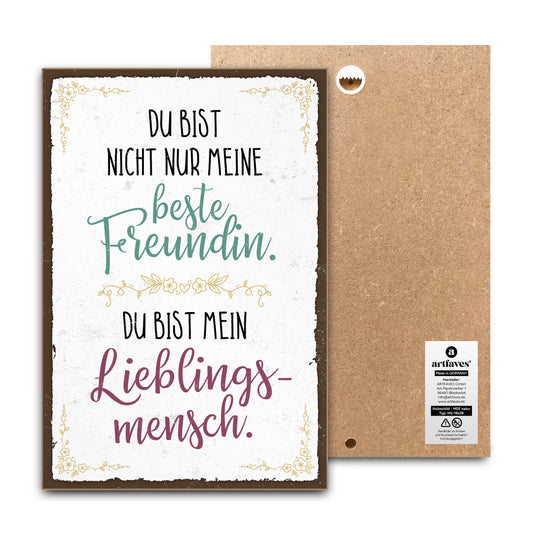 DU BIST
NICHT NUR MEINE
beste
Freundin.
DU BIST MEIN
Lieblings-
mensch.
a
artfaves®
Made in GERMANY
Hersteller:
ARTFAVES GmbH
66440 Blieskastel
info@artfaves.de
www.artfaves.de
Holzschild - MDF natur